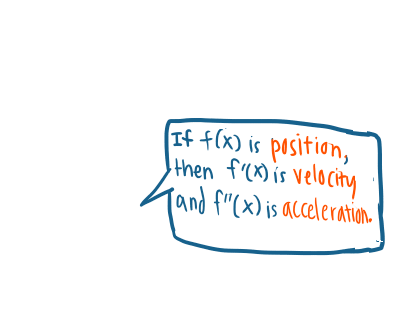 If f(x) is position,
then f'(x) is velocity
and f"(x) is acceleration.